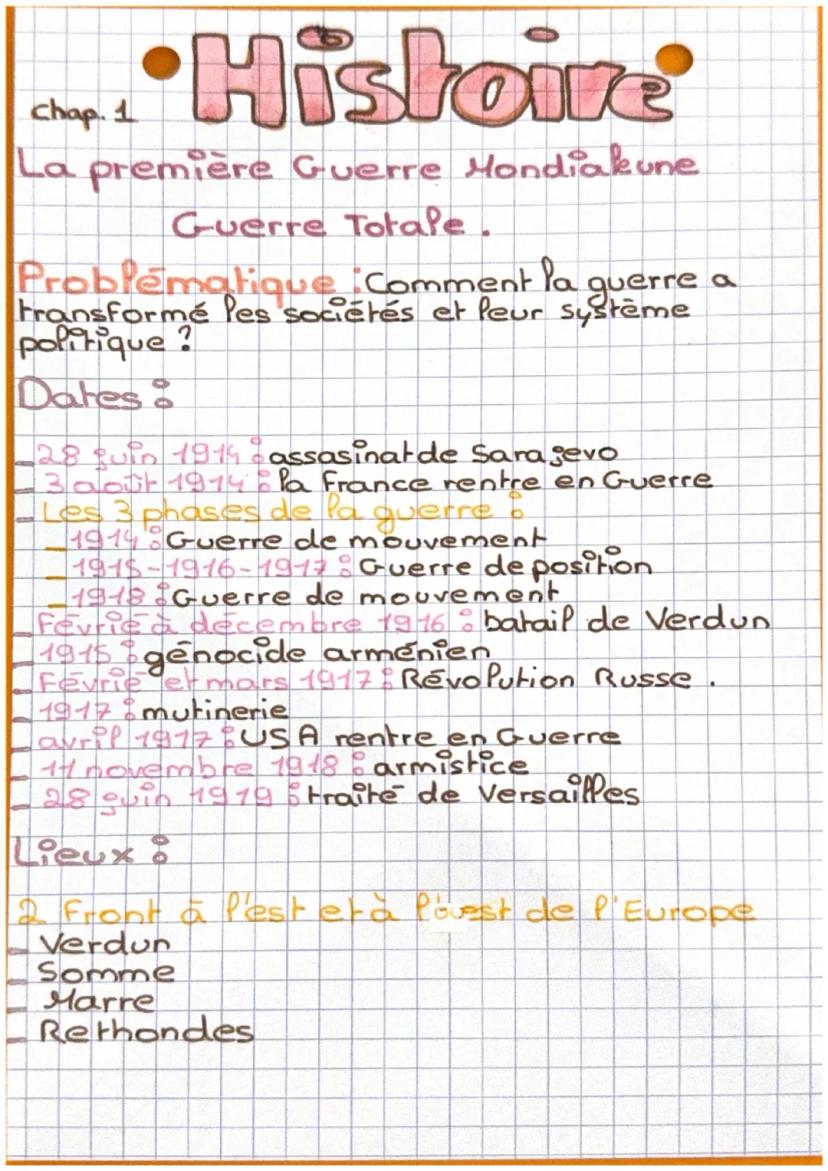 Histoire
Chap. 1
La première Guerre Mondiale une
Guerre Totale.
Problématique : Comment la guerre a
transformé les sociétés et leur système
politique ?
Dates :
- 28 juin 1914 : assasinat de Sarajevo
- 3 août 1914 : la France rentre en Guerre
- Les 3 phases de la guerre :
- 1914 : Guerre de mouvement
- 1915-1916-1917 : Guerre de position
- 1918 : Guerre de mouvement
- Févrié à décembre 1916 : batail de Verdun
- 1915 : génocide arménien
- Févrié et mars 1917 : Révolution Russe.
- 1917 : mutinerie
- avril 1917 : USA rentre en Guerre
- 11 novembre 1918 : armistice
- 28 juin 1919 : traité de Versailles
Lieux :
2 Front à l'est et à l'ouest de l'Europe
- Verdun
- Somme
- Marre
- Rethondes